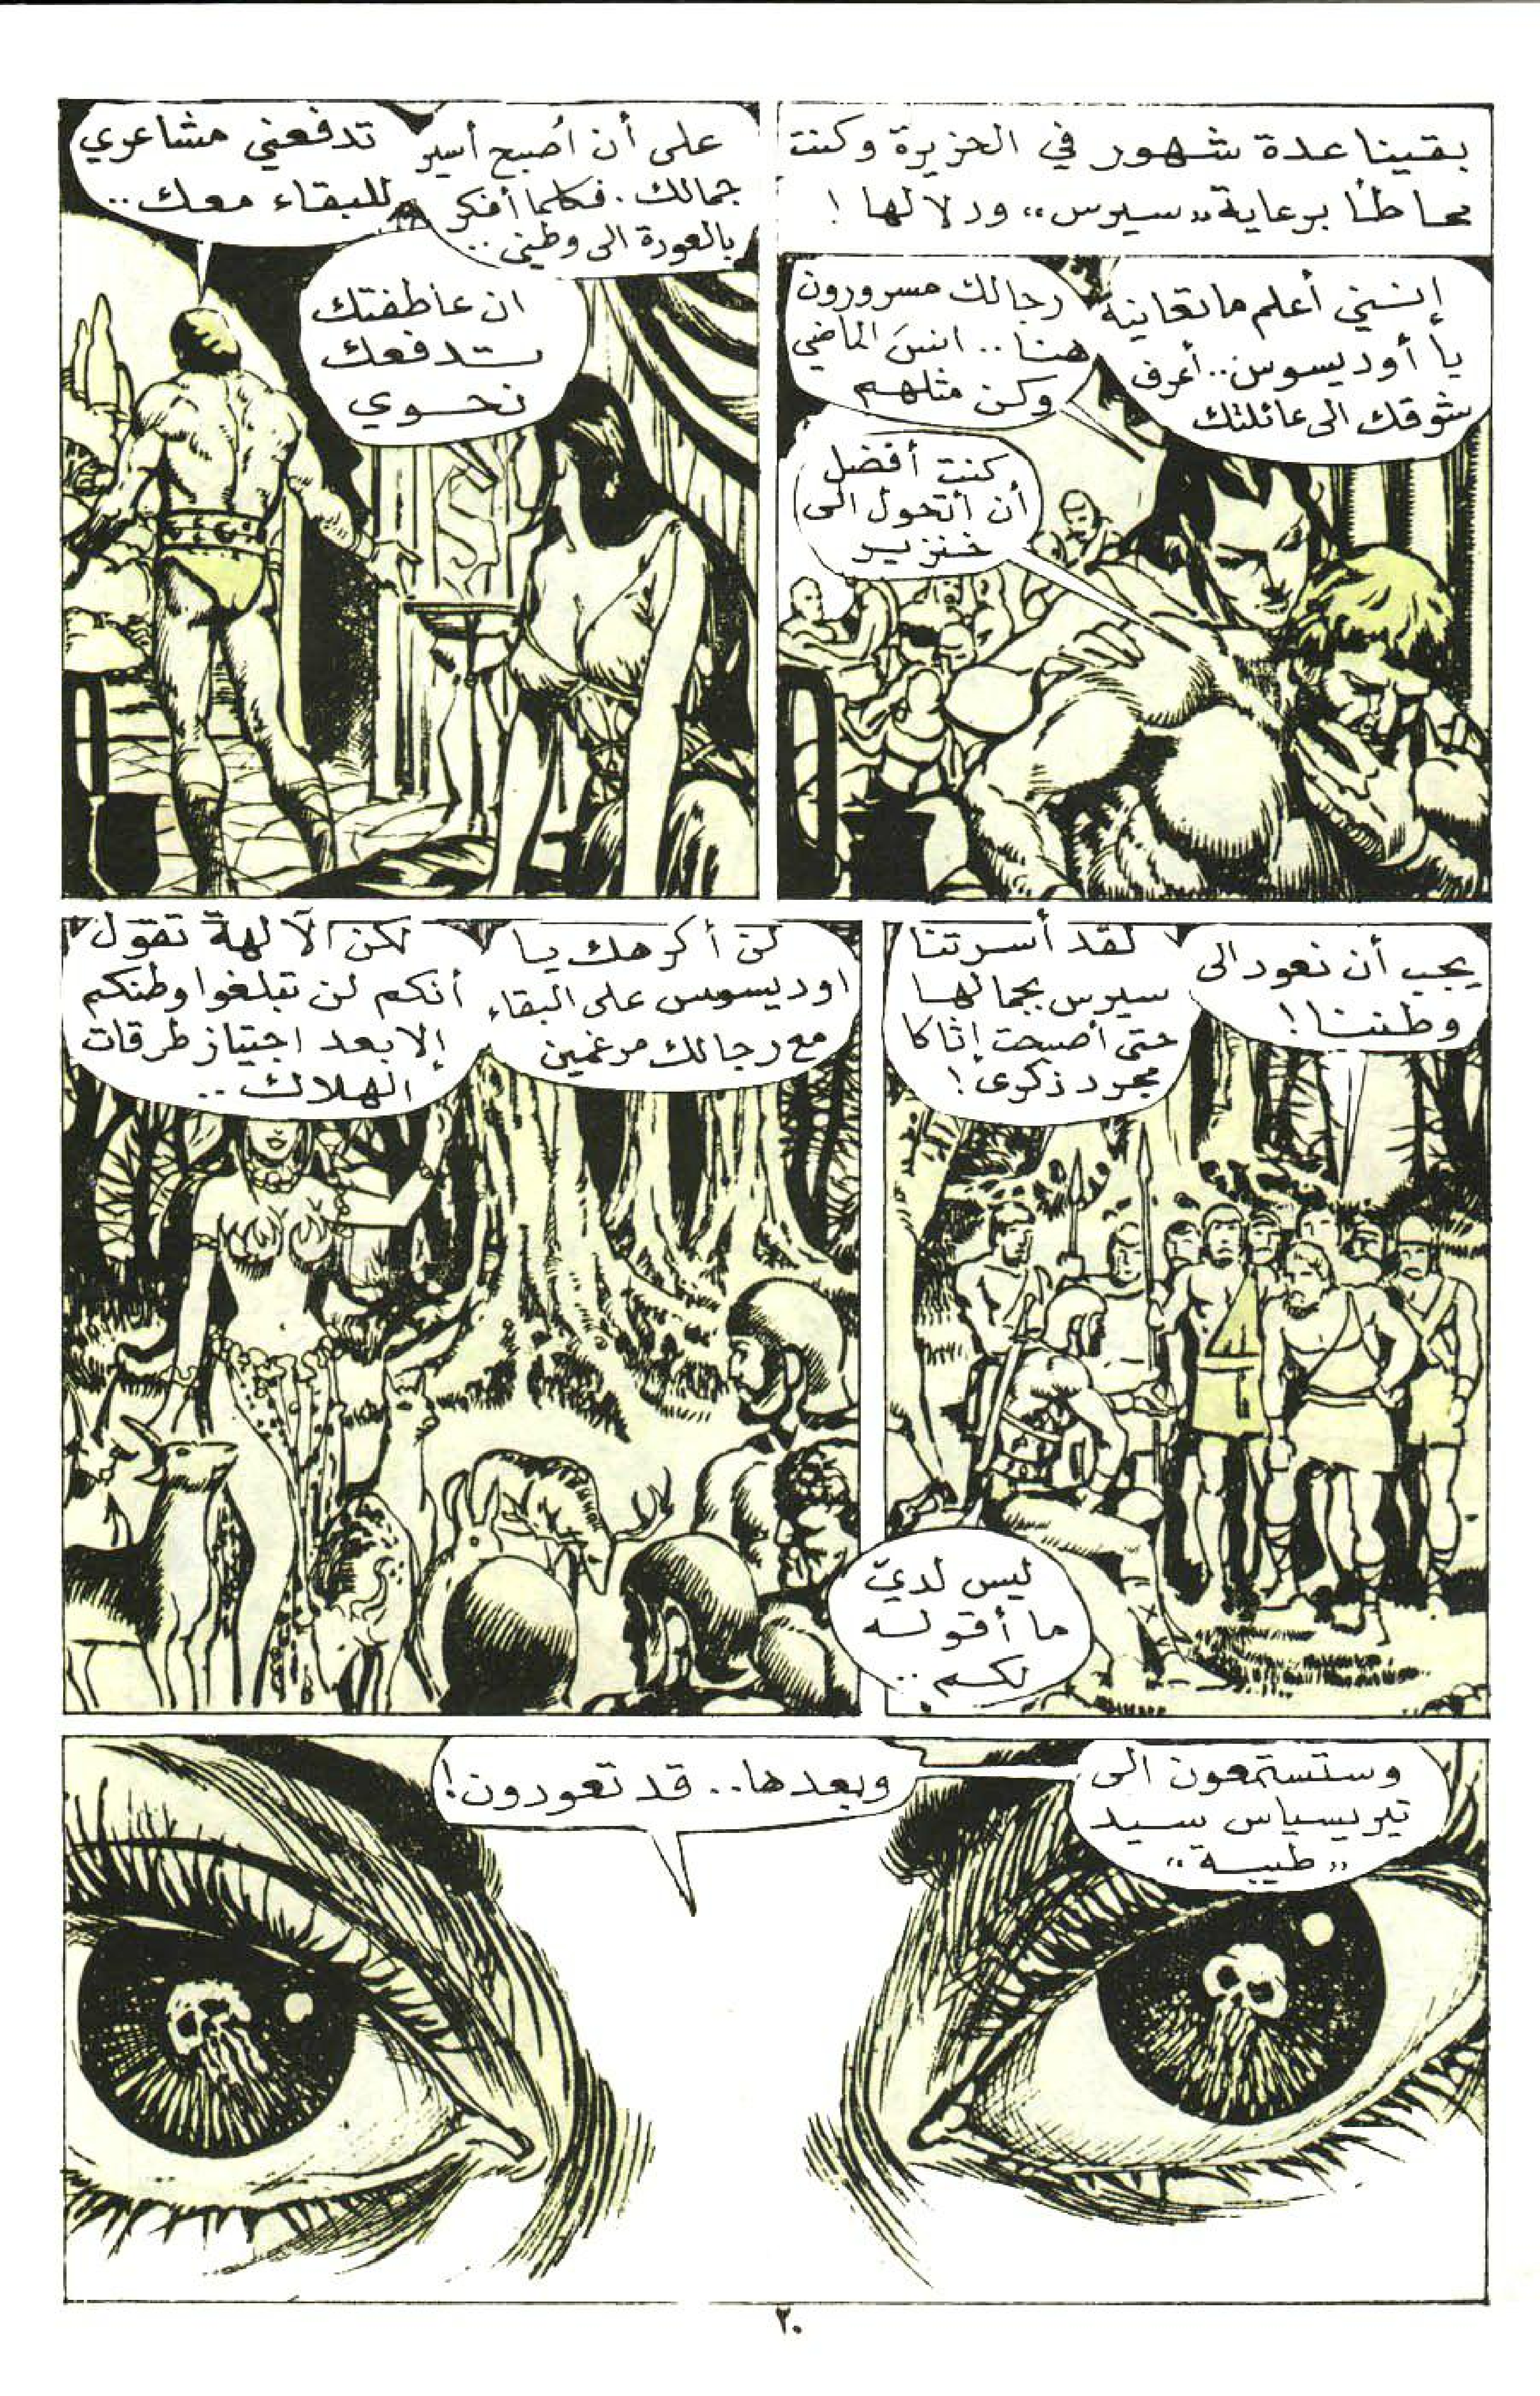 بقينا عدة شهور في الجزيرة وكنت
محاطًا برعاية «سيرس» ودلالها !
إنني أعلم ما تعانيه
يا أوديسوس.. أعرف
شوقك الى عائلتك
رجالك مسرورون
هنا.. انسَ الماضي
وكن مثلهم
كنت أفضل
أن أتحول الى
خنزير
على أن أصبح أسير
جمالك. فكلما أفكر
بالعودة الى وطني..
تدفعني مشاعري
للبقاء معك..
ان عاطفتك
تدفعك
نحوي
يجب أن نعود الى
وطننا !
لقد أسرتنا
سيرس بجمالها
حتى أصبحت إثاكا
مجرد ذكرى !
ليس لديّ
ما أقوله
لكم ..
لن أكرهك يا
اوديسوس على البقاء
مع رجالك مرغمين
لكن الآلهة تقول
أنكم لن تبلغوا وطنكم
إلا بعد اجتياز طرقات
الهلاك ..
وستستمعون الى
تيريسياس سيد
«طيبة»
وبعدها.. قد تعودون !
٢٠